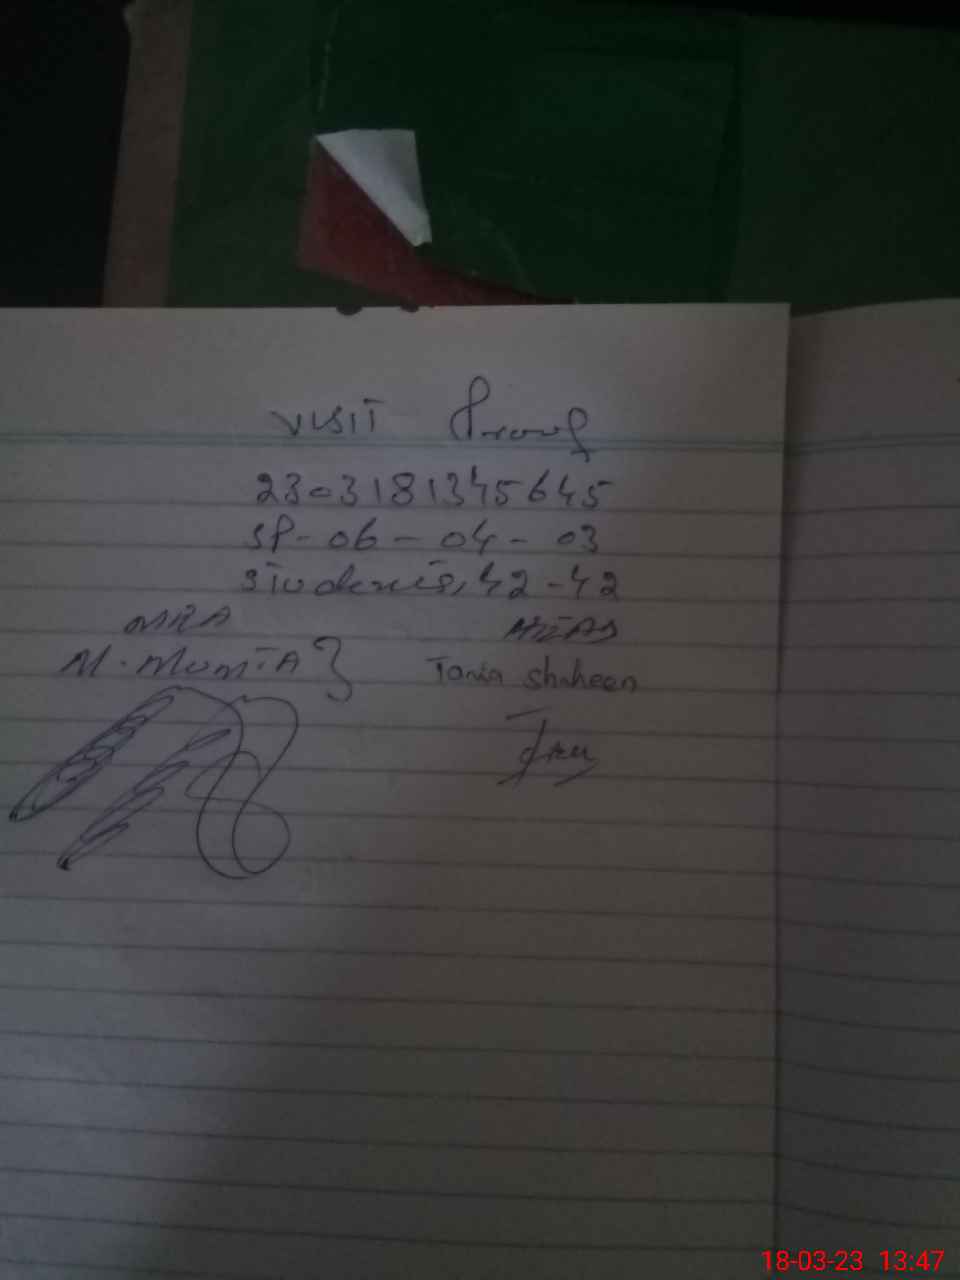 VISIT Proof
2303181345645
SP-06-04-03
Students, 42-42
MRA HEAD
M. Mumta Tania Shaheen
18-03-23 13:47